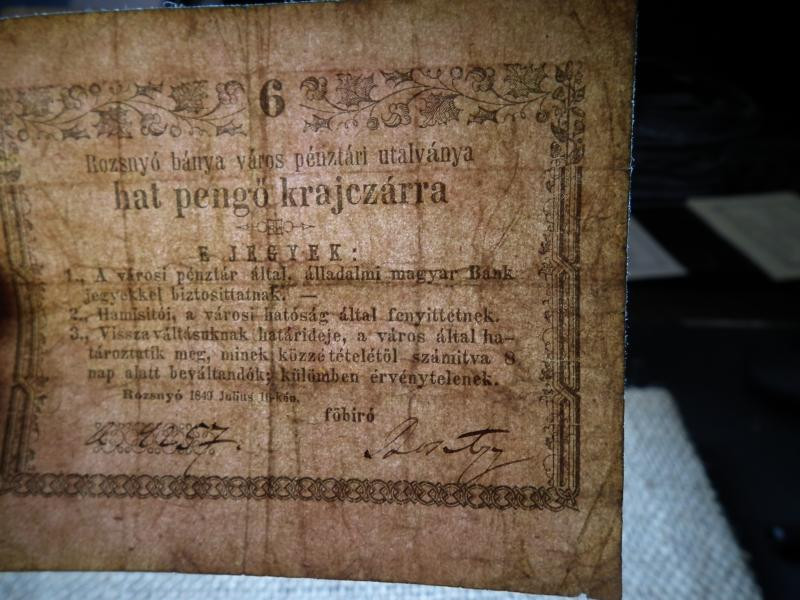 6
Rozsnyó bánya város pénztári utalványa
hat pengő krajczárra
E JEGYEK:
1., A városi pénztár által, álladalmi magyar Bank
jegyekkel biztosittatnak. —
2., Hamisítói, a városi hatóság által fenyittetnek.
3., Visszaváltásuknak határideje, a város által ha-
tároztatik meg, minek közzétételétöl számitva 8
nap alatt beváltandók; külömben érvénytelenek.
Rozsnyó 1849 Julius 16-kán.
föbiró
4257.